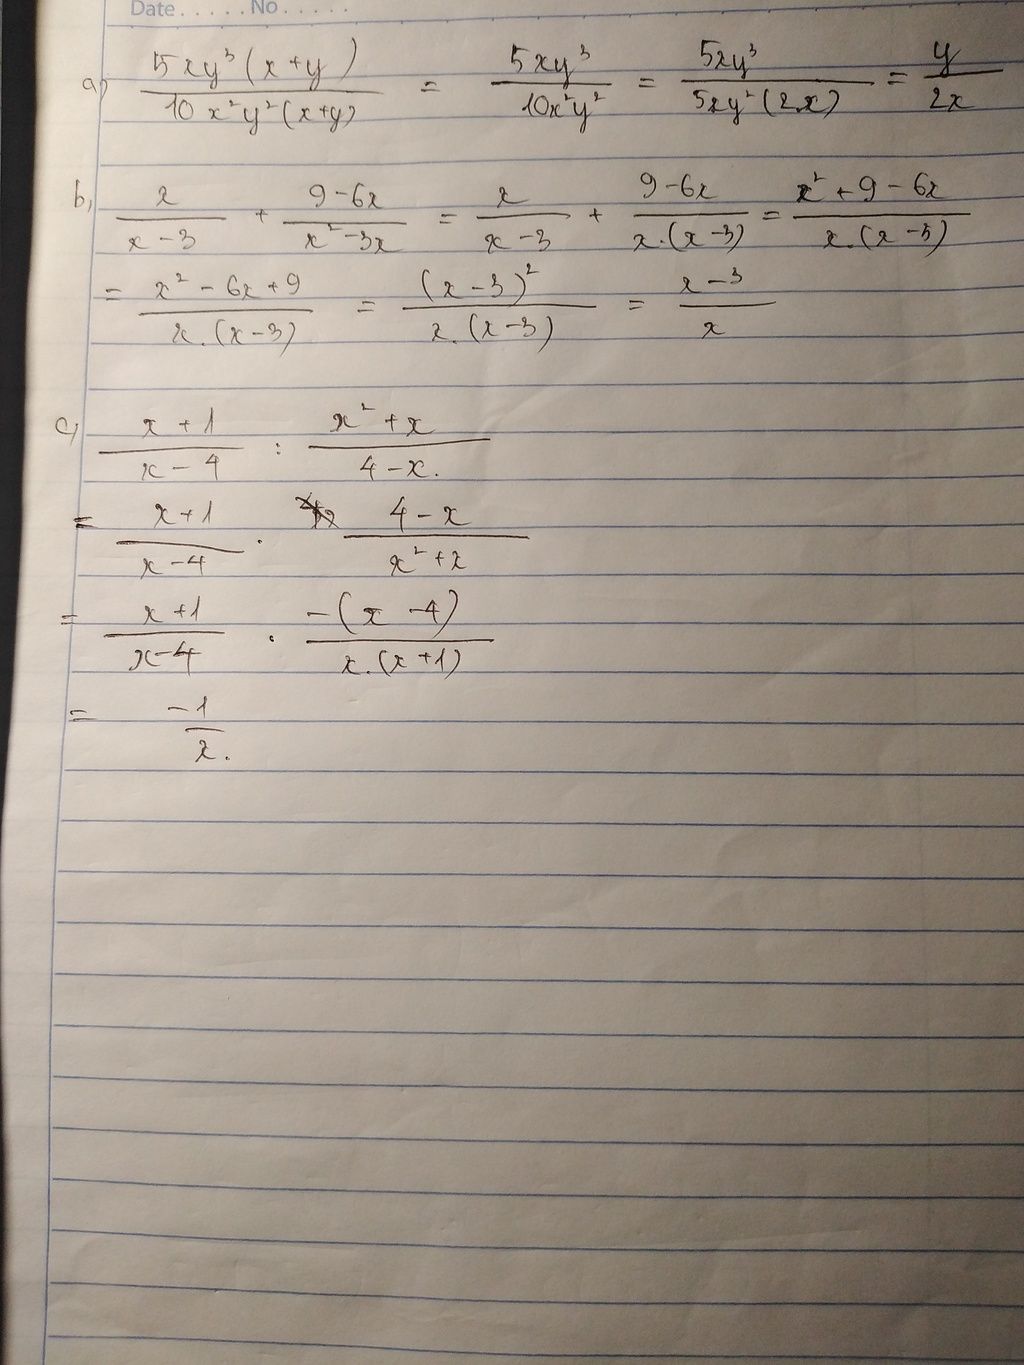 Date ..... No .....
a) \frac{5xy³(x+y)}{10x²y²(x+y)} = \frac{5xy³}{10x²y²} = \frac{5xy³}{5xy²(2x)} = \frac{y}{2x}
b, \frac{x}{x-3} + \frac{9-6x}{x²-3x} = \frac{x}{x-3} + \frac{9-6x}{x.(x-3)} = \frac{x²+9-6x}{x.(x-3)}
= \frac{x²-6x+9}{x.(x-3)} = \frac{(x-3)²}{x.(x-3)} = \frac{x-3}{x}
c, \frac{x+1}{x-4} : \frac{x²+x}{4-x.}
= \frac{x+1}{x-4} . \frac{4-x}{x²+x}
= \frac{x+1}{x-4} . \frac{-(x-4)}{x.(x+1)}
= \frac{-1}{x.}